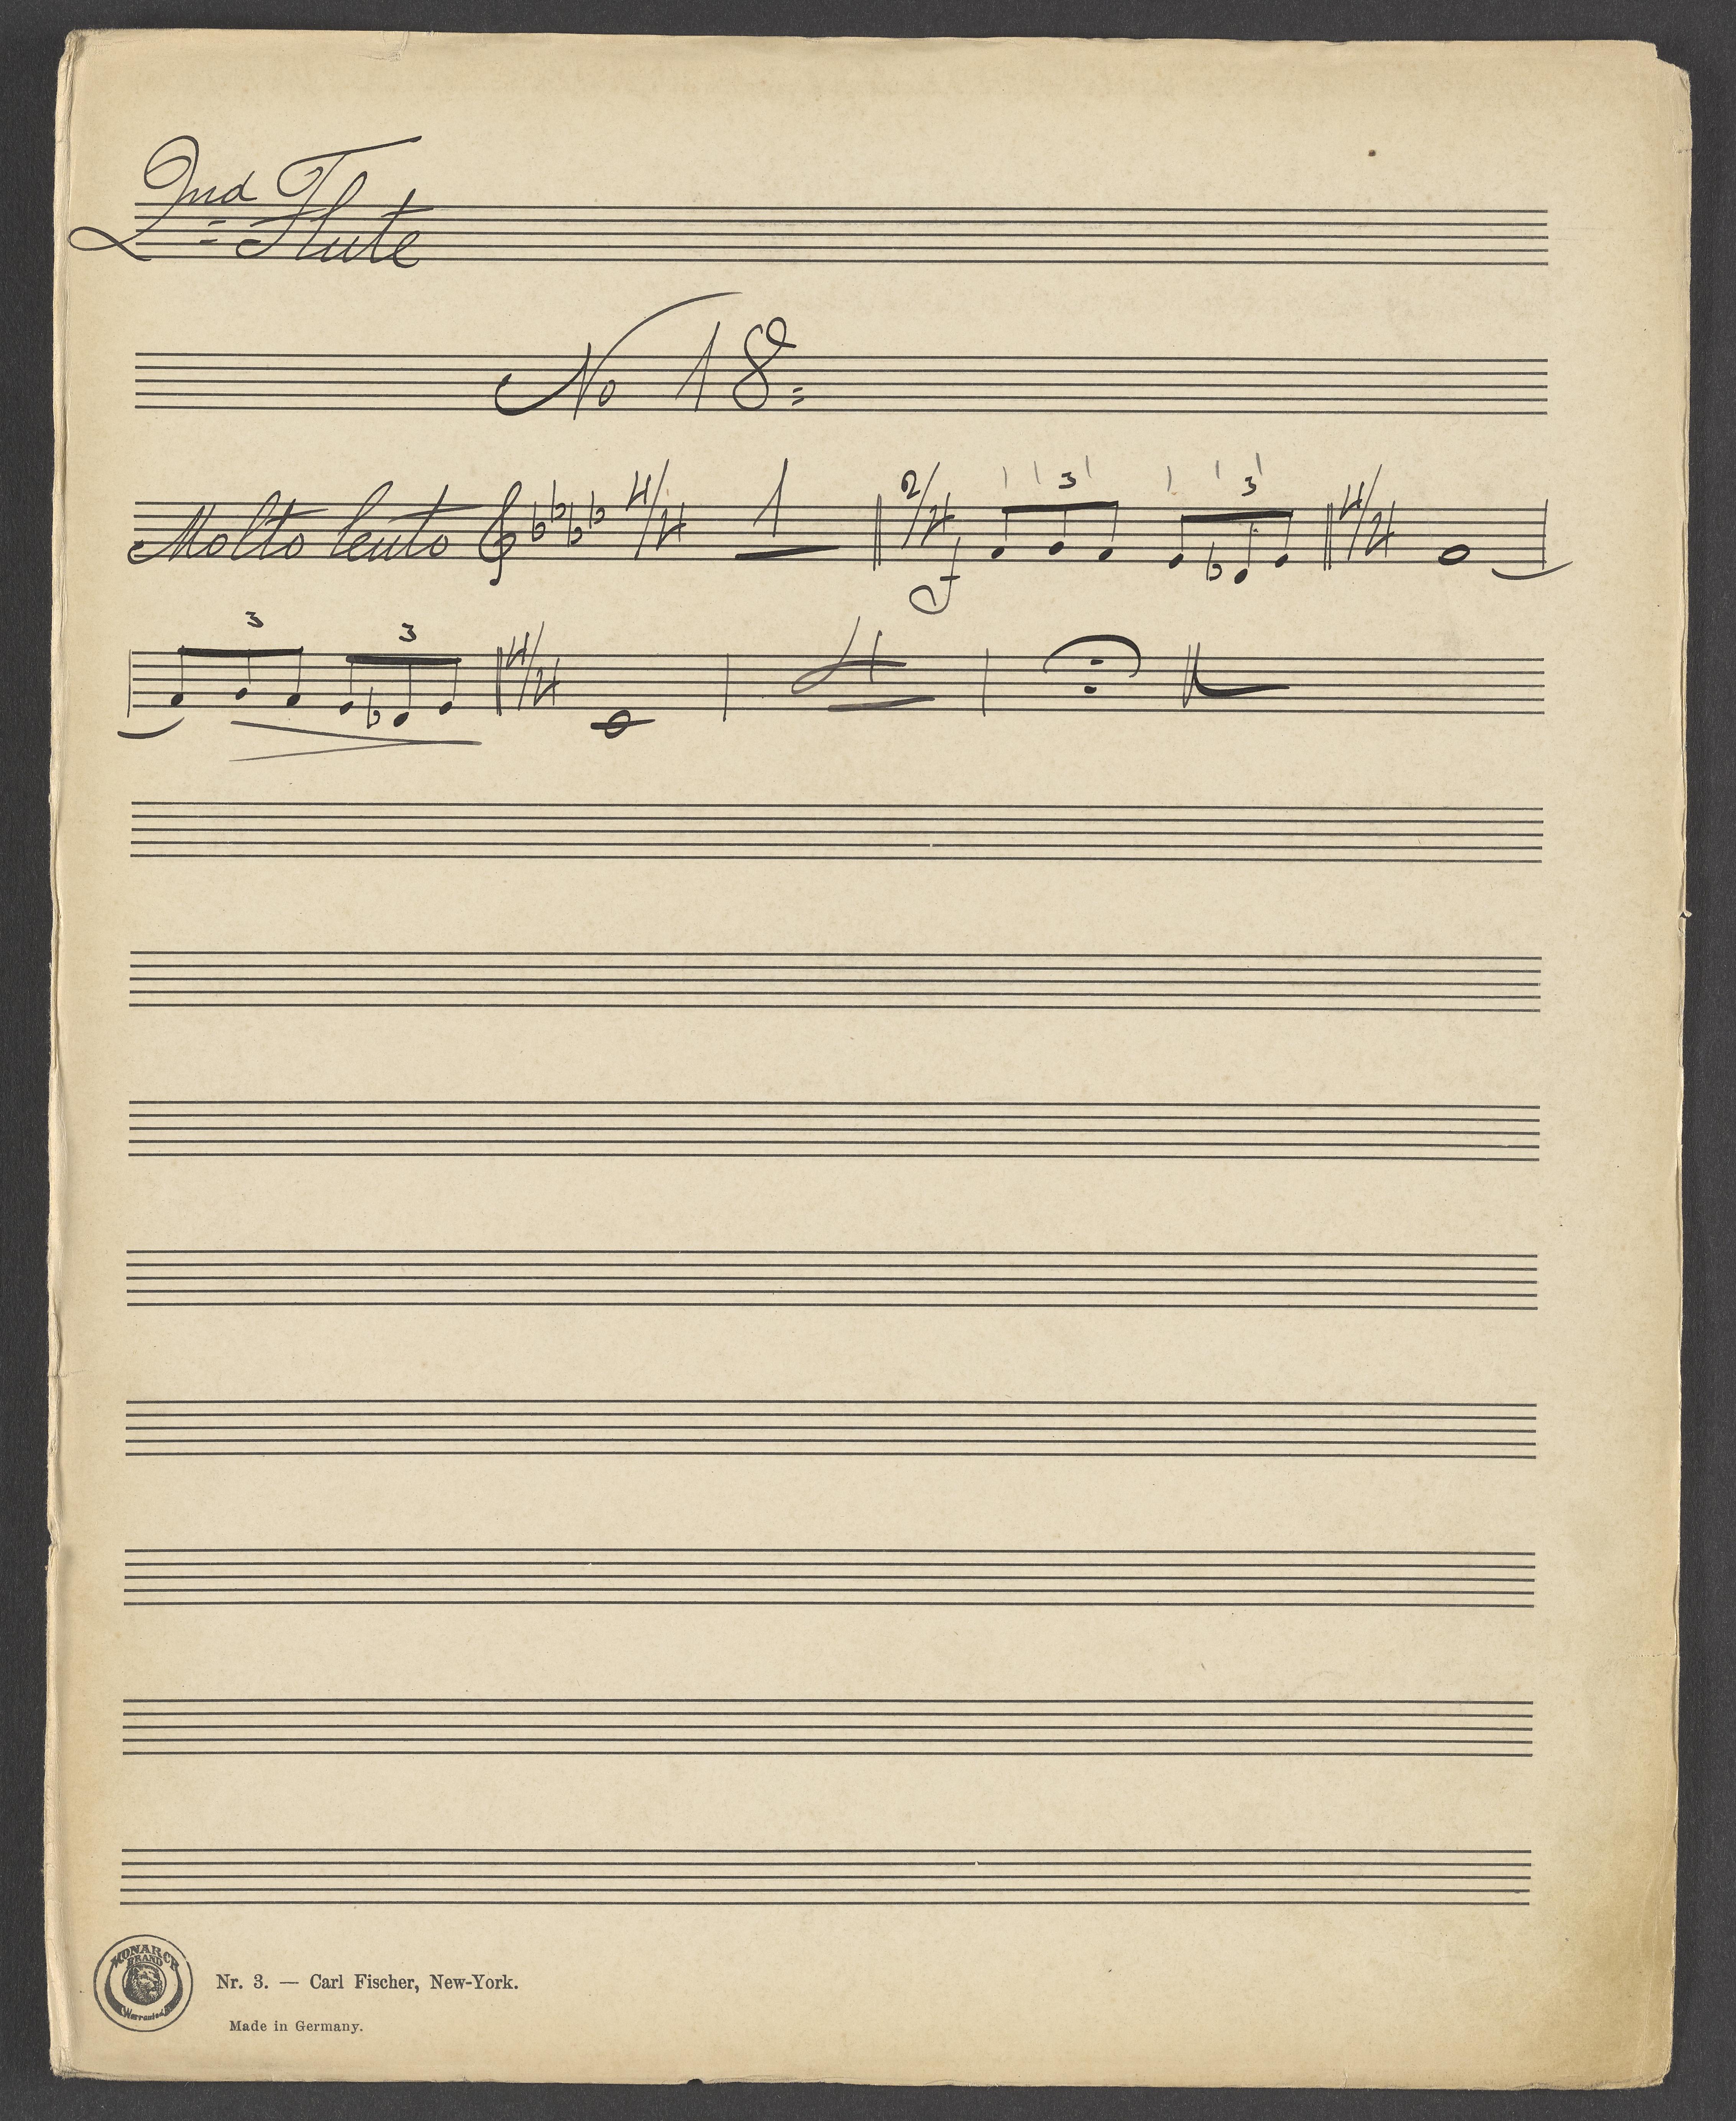 2nd Flute
No 18
Molto lento 4/4 1 2/4 3 3 4/4
f
3 3
4/4 4
MONARCH BRAND Warranted
Nr. 3. — Carl Fischer, New-York.
Made in Germany.